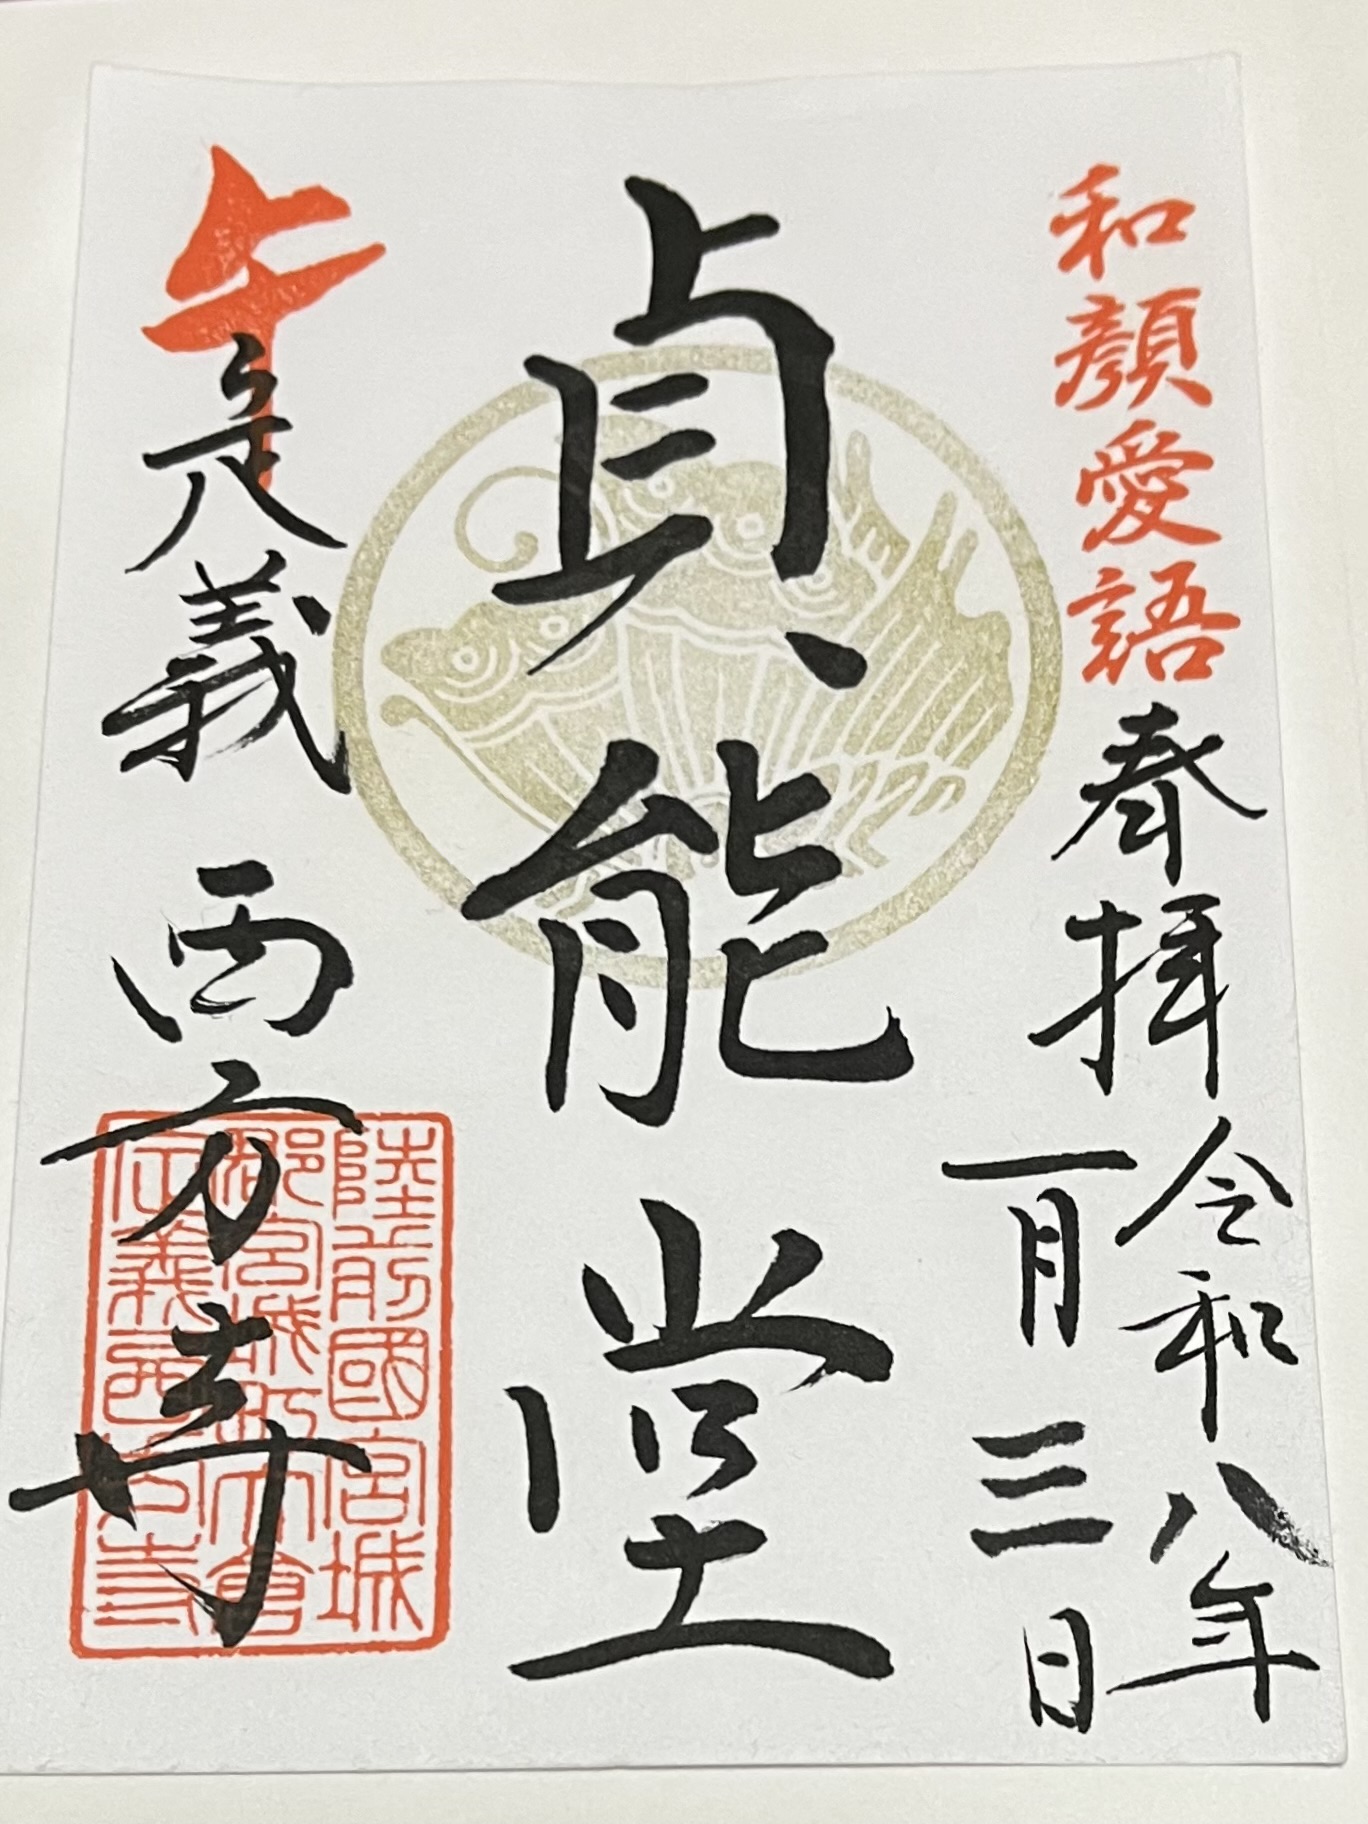 和顔愛語
奉拝
令和八年
一月三日
貞能堂
午
定義 西方寺
陸前國宮城
郡宮城町大倉
定義西方寺